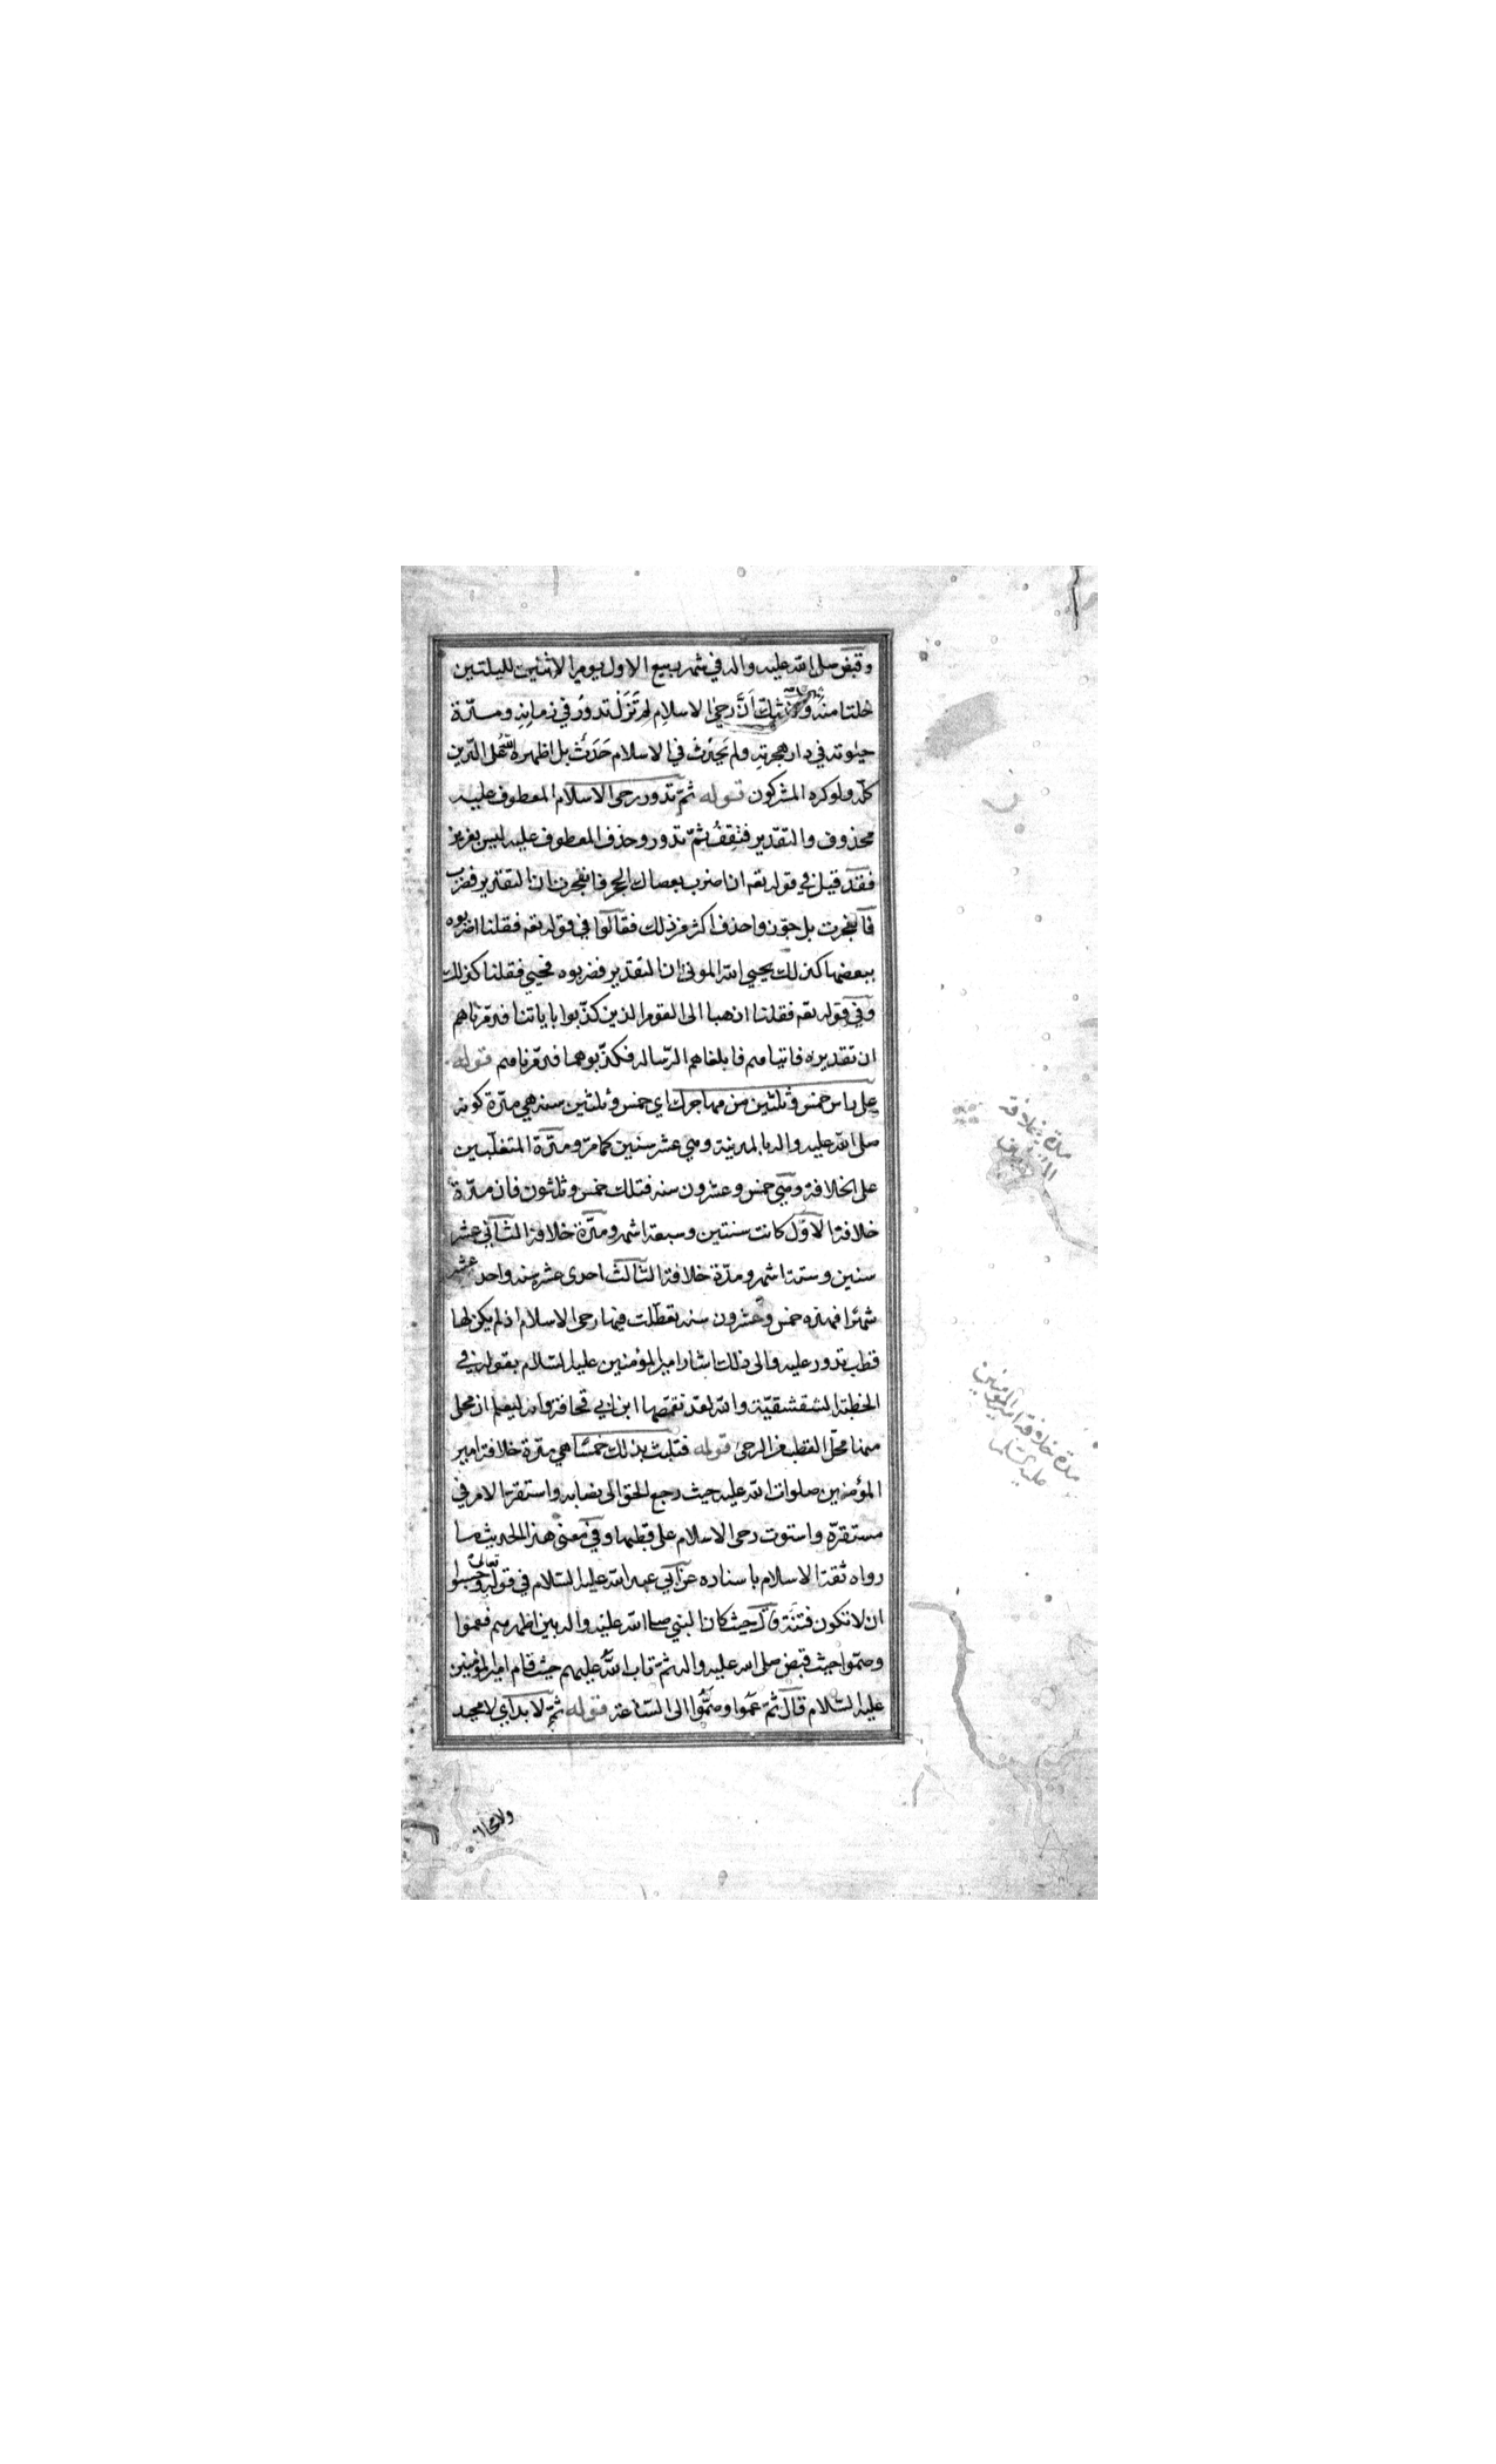 وقبض صلى الله عليه واله في شهر ربيع الاول يوم الاثنين لليلتين
خلتا منه ولا شك اَنَّ رحىٰ الاسلامِ لم تَزَلْ تدورُ في زمانِهِ ومدّة
حيٰوته في دار هجرتِهِ ولم يَحْدُث في الاسلام حَدَثٌ بل اظهره اللهُ على الدّين
كلّه ولو كره المشركون قوله ثمّ تدور رحى الاسلام المعطوف عليه
محذوف والتقدير فتقِفُ ثمّ تدور وحذف المعطوف عليه ليس بعزيز
فقد قيل في قوله تعه ان اضرب بعصاك الحجر فانفجرت ان التقدير فضرب
فانفجرت بل جوّزوا حذف اكثر من ذلك فقالوا في قوله تعه فقلنا اضربوه
ببعضها كذلك يحيي الله الموتى ان التقدير فضربوه فحيي فقلنا كذلك
وفي قوله تعه فقلنا اذهبا الى القوم الذين كذّبوا باياتنا فدمّرناهم
ان تقديره فاتياهم فابلغاهم الرّساله فكذّبوهما فدمّرناهم قوله
على راس خمس وثلثين من مهاجرك اي خمس وثلثين سنه هي مدّة كونه
صلى الله عليه واله بالمدينة وهي عشر سنين كما مرّ ومدّة المتغلّبين
على الخلافة وهي خمس وعشرون سنه فتلك خمس وثلثون فان مدّة
خلافة الاوّل كانت سنتين وسبعة اشهر ومدّة خلافة الثاني عشر
سنين وستة اشهر ومدّة خلافة الثالث احدى عشره سنه واحد عشر
شهرًا فهذه خمس وعشرون سنه تعطّلت فيها رحى الاسلام اذ لم يكن لها
قطب تدور عليه والى ذلك اشار امير المؤمنين عليه السّلام بقوله في
الخطبة الشقشقيّة والله لقد تقمّصها ابن ابي قحافة وانه ليعلم ان محلى
منها محلّ القطب من الرحى قوله فتلبث بذلك خمسًا هي مدّة خلافة امير
المؤمنين صلوات الله عليه حيث رجع الحق الى نصابه واستقرّ الامر في
مستقرّه واستوت رحى الاسلام على قطبها وفي معنى هذا الحديث ما
رواه ثقة الاسلام باسناده عن ابي عبد الله عليه السّلام في قوله تعالى وحسبوا
ان لا تكون فتنَة قال حيث كان النبي صلى الله عليه واله بين اظهرهم فعموا
وصمّوا حيث قبض صلى الله عليه واله ثمّ تاب اللهُ عليهم حيث قام امير المؤمنين
عليه السّلام قال ثمّ عَموا وصَمُّوا الى السّاعة قوله ثمّ لا بدّ اي لا محيد
مدة خلافة
مدة خلافة امير المومنين
عليه السلام